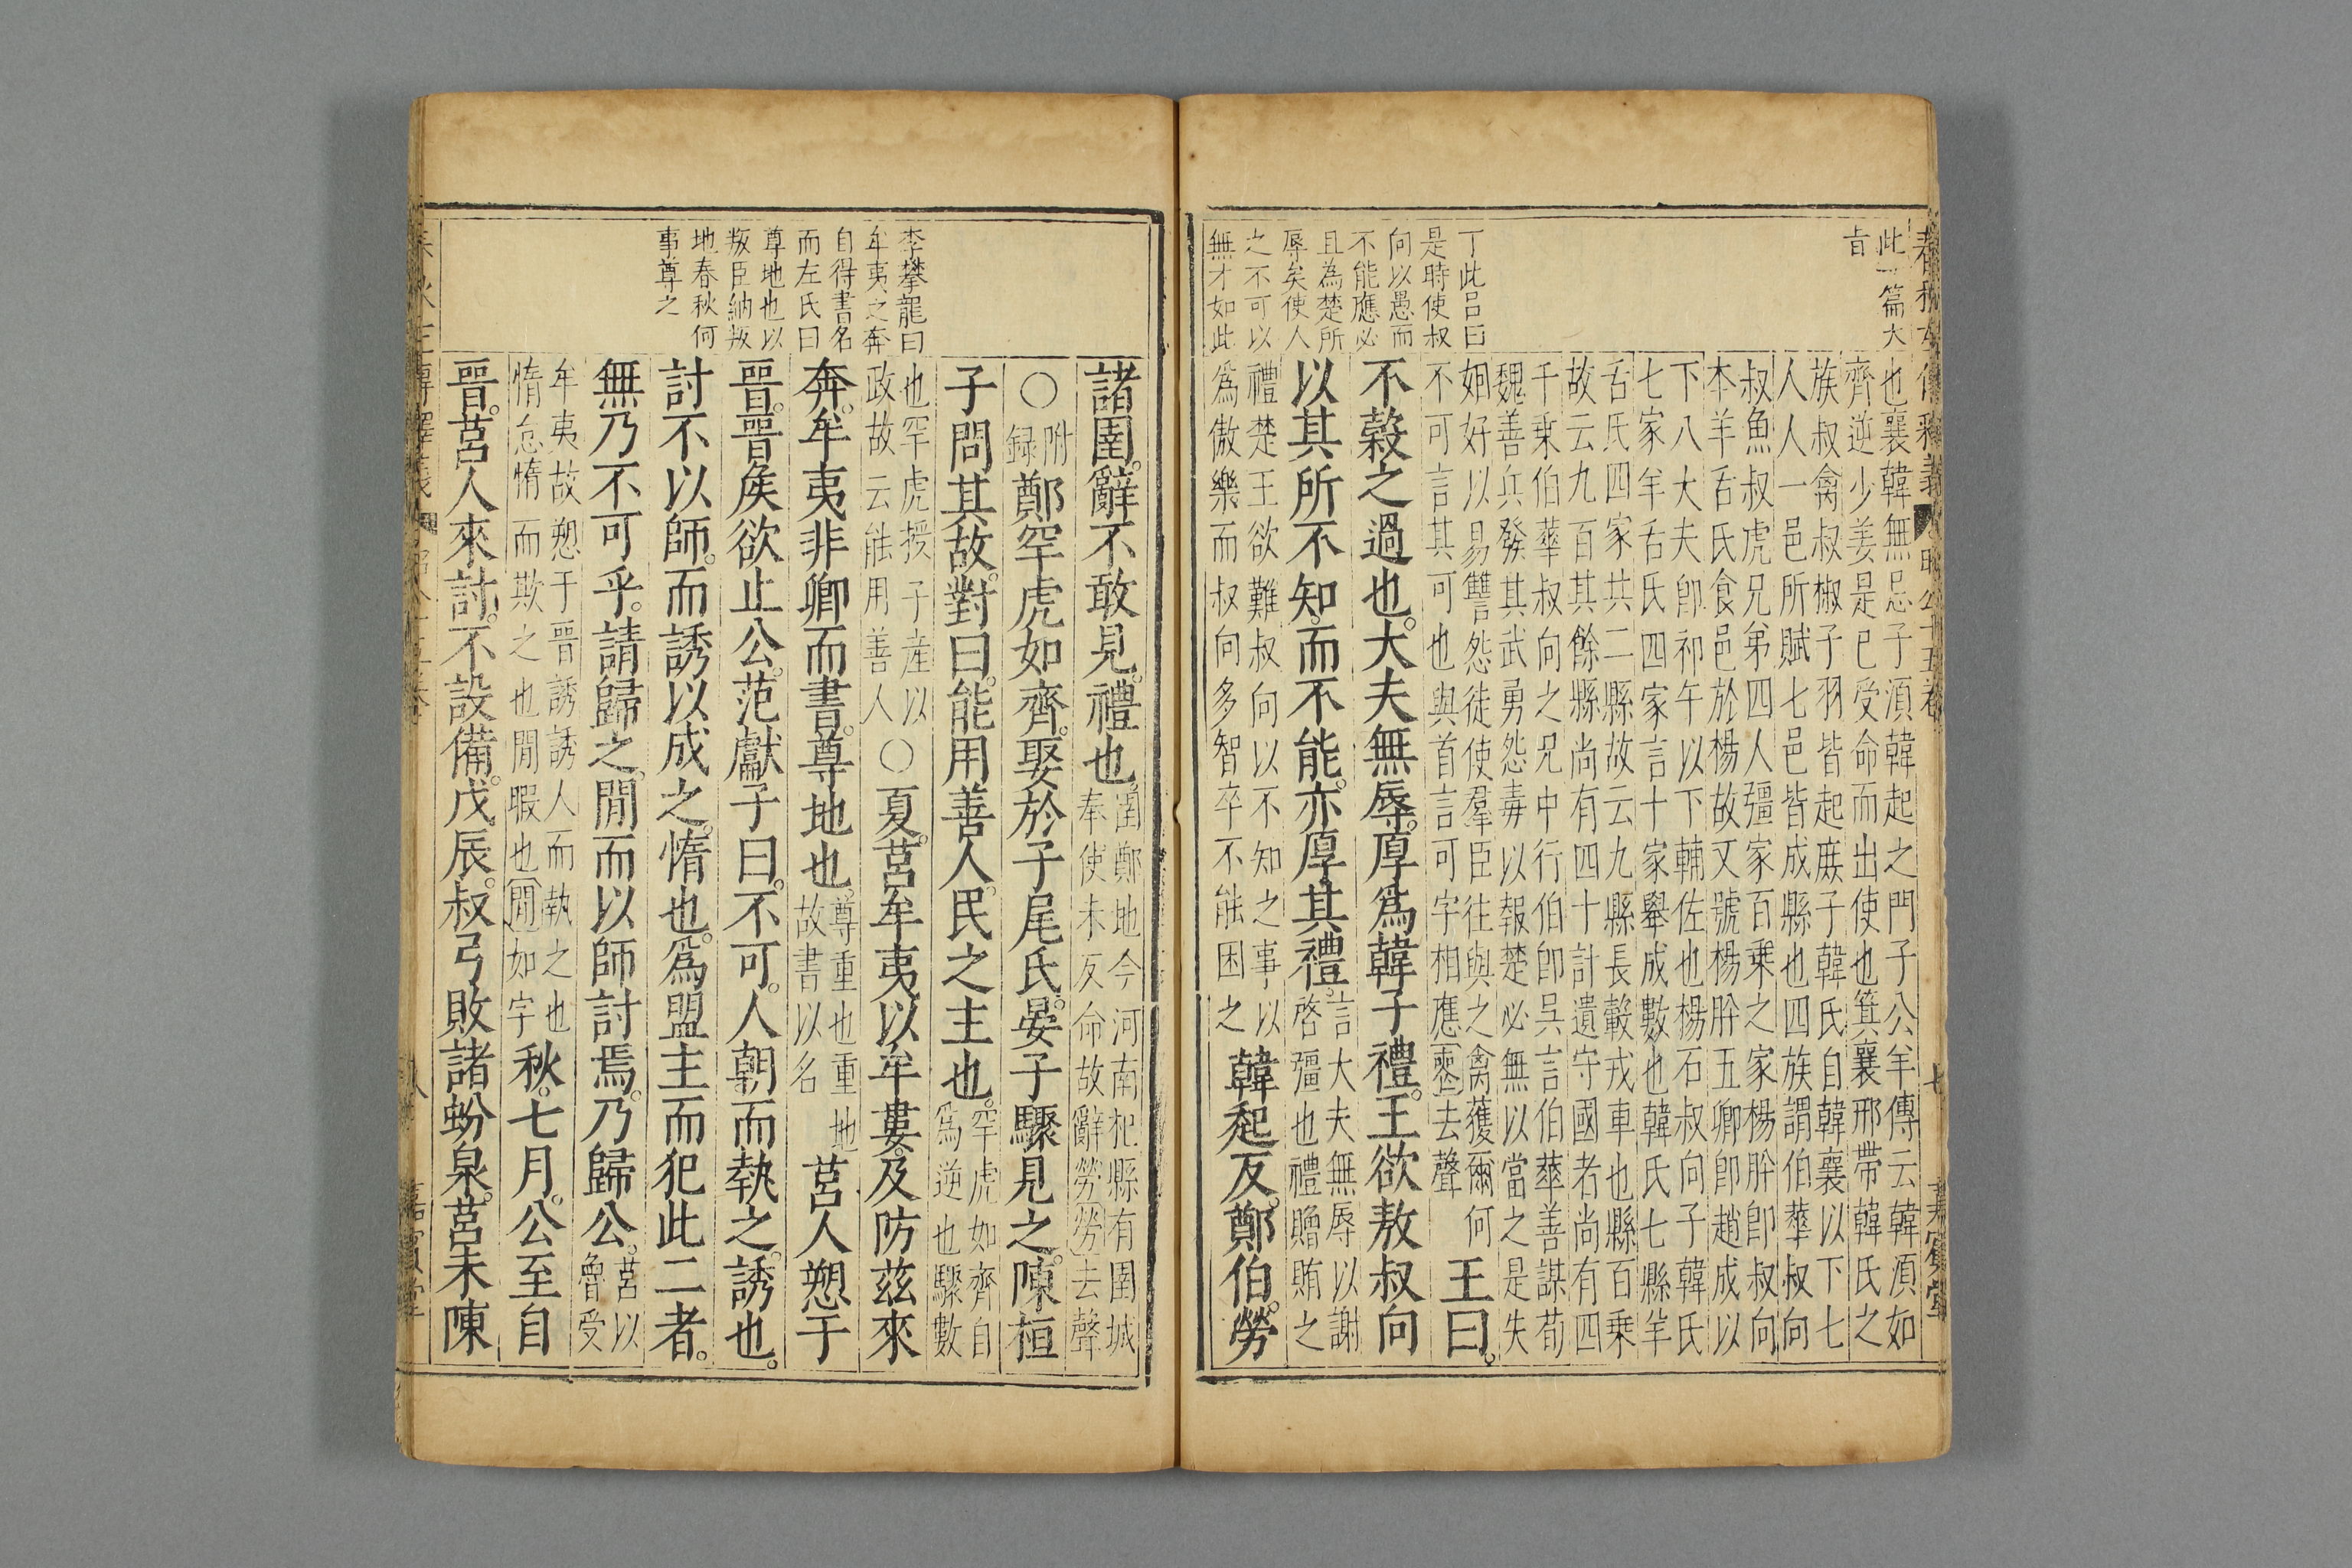 此一篇大
旨
丁此呂曰
是時使叔
向以愚而
不能應必
且為楚所
辱矣使人
之不可以
無才如此
也襄韓無忌子湏韓起之門子公羊傳云韓湏如
齊逆少姜是巳受命而出使也箕襄邢帶韓氏之
族叔禽叔椒子羽皆起庶子韓氏自韓襄以下七
人人一邑所賦七邑皆成縣也四族謂伯華叔向
叔魚叔虎兄弟四人彊家百乗之家楊肸即叔向
本羊舌氏食邑於楊故又號楊肸五卿即趙成以
下八大夫即祁午以下輔佐也楊石叔向子韓氏
七家羊舌氏四家言十家舉成數也韓氏七縣羊
舌氏四家共二縣故云九縣長轂戎車也縣百乗
故云九百其餘縣尚有四十計遺守國者尚有四
千乗伯華叔向之兄中行伯即吳言伯華善謀荀
魏善兵發其武勇怨毒以報楚必無以當之是失
婣好以易讐怨徒使羣臣往與之禽獲爾何
不可言其可也與首言可字相應壓去聲
王曰。
不榖之過也。大夫無辱。厚爲韓子禮。王欲敖叔向
以其所不知。而不能。亦厚其禮。
言大夫無辱以謝
啓彊也禮贈賄之
禮楚王欲難叔向以不知之事以
爲傲樂而叔向多智卒不能困之
韓起反。鄭伯。勞
李攀龍曰
牟夷之奔
自得書名
而左氏曰
尊地也以
叛臣納叛
地春秋何
事尊之
諸圉。辭不敢見。禮也
圉鄭地今河南杞縣有圉城
奉使未反命故辭勞勞去聲
〇
附
録
鄭罕虎如齊。娶於子尾氏。晏子驟見之。陳桓
子問其故。對曰。能用善人。民之主也。
罕虎如齊自
爲逆也驟數
也罕虎授子産以
政故云能用善人
〇夏。莒牟夷以牟婁。及防茲來
奔。牟夷非卿而書。尊地也。
尊重也重地
故書以名
莒人愬于
晉。晉矦欲止公。范獻子曰。不可。人朝而執之。誘也。
討不以師。而誘以成之。惰也。爲盟主而犯此二者。
無乃不可乎。請歸之。閒而以師討焉。乃歸公。
莒以
魯受
牟夷故愬于晉誘誘人而執之也
惰怠惰而欺之也閒暇也閒如字
秋。七月。公至自
晉。莒人來討。不設備。戊辰。叔弓敗諸蚡泉。莒未陳